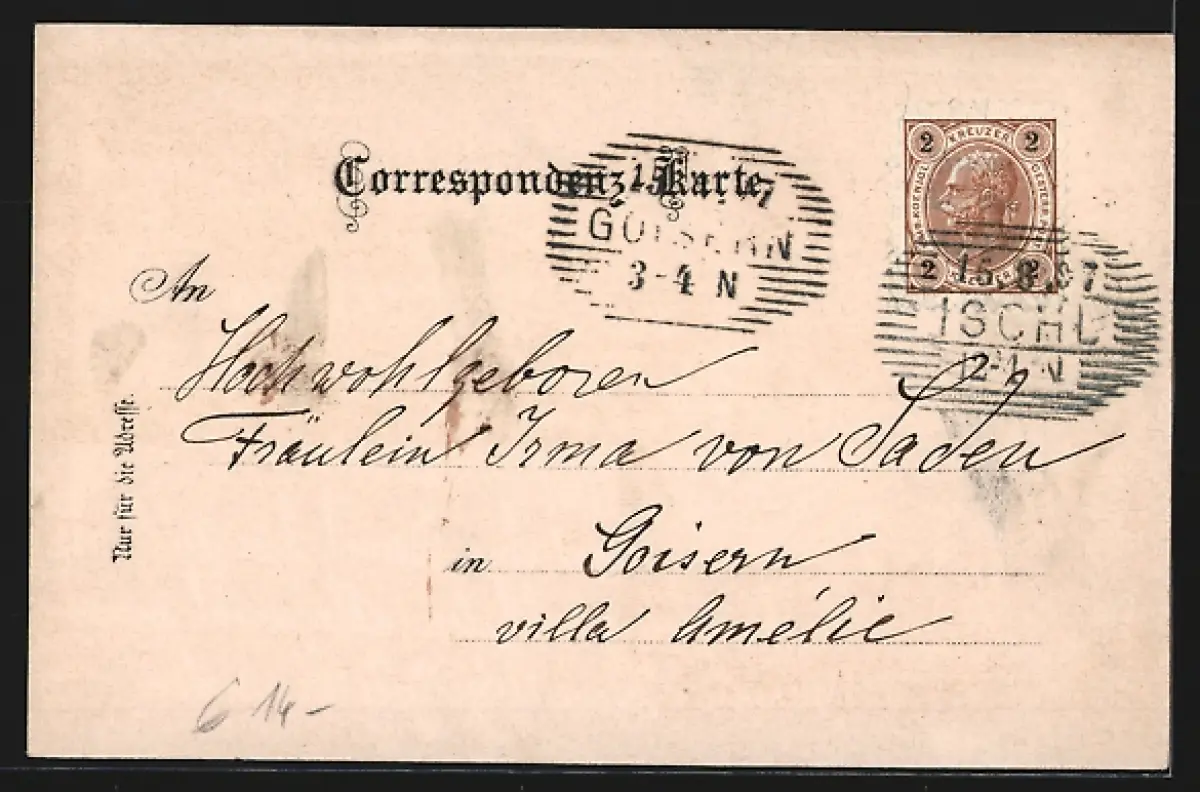 2 KREUZER 2
2 2
Correspondenz-Karte.
15
7
GOISERN
3-4 N
15.8.97
ISCHL
12-1 N
An
Hochwohlgeboren
Fräulein Irma von Saden
in Goisern
villa Amélie
Nur für die Adresse.
6 14-